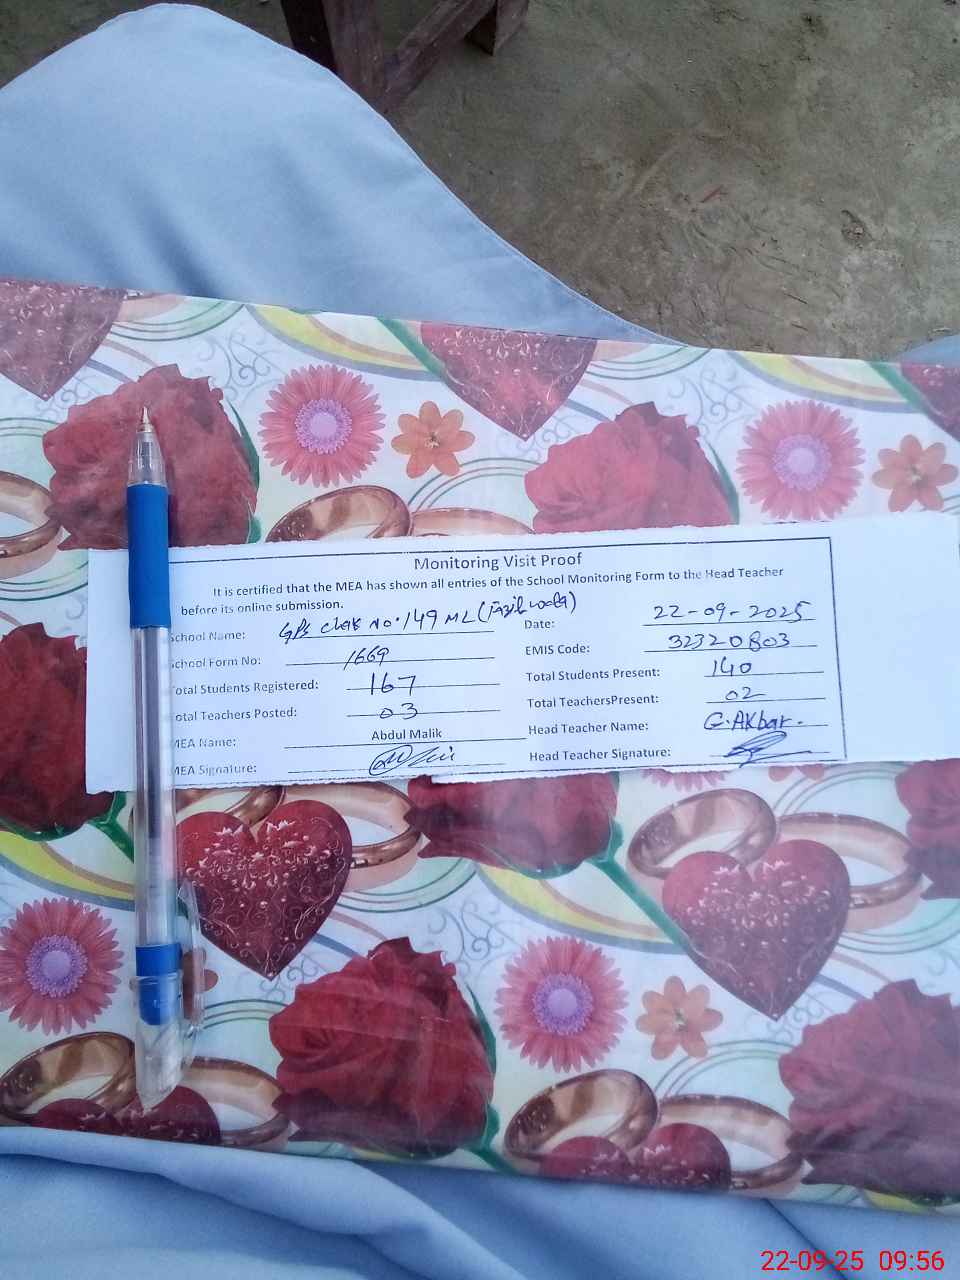 Monitoring Visit Proof
It is certified that the MEA has shown all entries of the School Monitoring Form to the Head Teacher
before its online submission.
School Name: GPS chak No. 149 ML ( Date: 22-09-2025
School Form No: 1669 EMIS Code: 32320803
Total Students Registered: 167 Total Students Present: 140
Total Teachers Posted: 03 Total TeachersPresent: 02
MEA Name: Abdul Malik Head Teacher Name: G.AKbar.
MEA Signature: Head Teacher Signature:
22-09-25 09:56